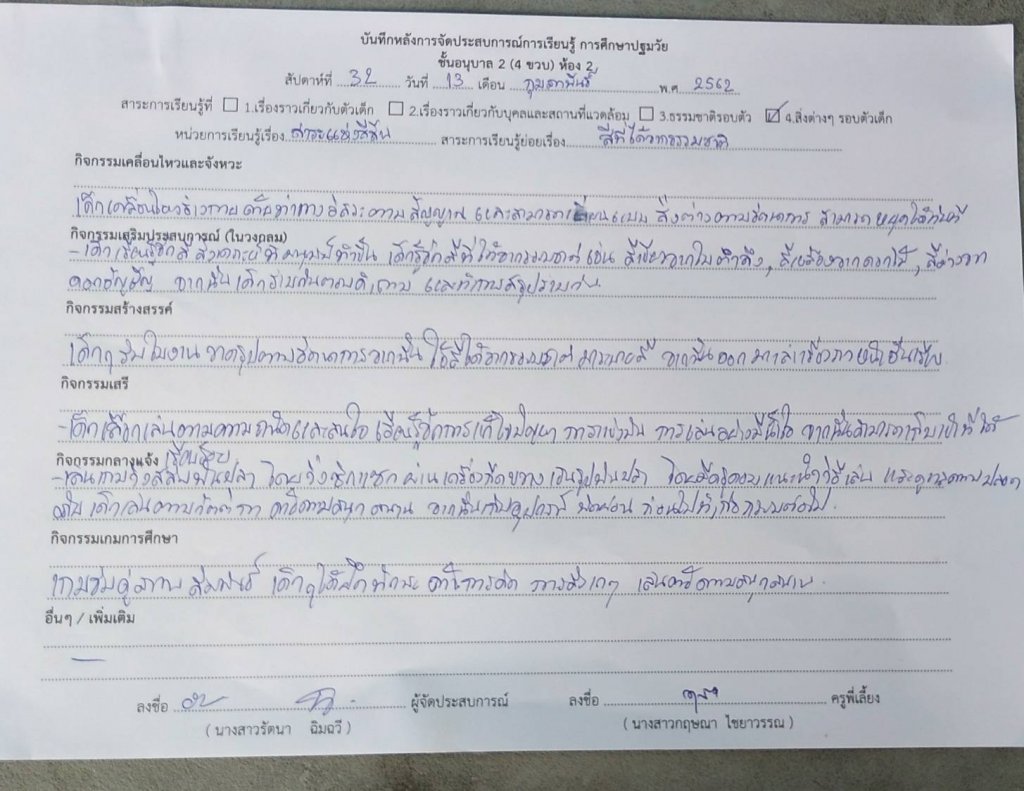 บันทึกหลังการจัดประสบการณ์การเรียนรู้ การศึกษาปฐมวัย
ชั้นอนุบาล 2 (4 ขวบ) ห้อง 2
สัปดาห์ที่ 32 วันที่ 13 เดือน กุมภาพันธ์ พ.ศ. 2562
สาระการเรียนรู้ที่ ☐ 1.เรื่องราวเกี่ยวกับตัวเด็ก ☐ 2.เรื่องราวเกี่ยวกับบุคลและสถานที่แวดล้อม ☐ 3.ธรรมชาติรอบตัว ☑ 4.สิ่งต่างๆ รอบตัวเด็ก
หน่วยการเรียนรู้เรื่อง สาระแห่งสีสัน สาระการเรียนรู้ย่อยเรื่อง สีที่ได้จากธรรมชาติ
กิจกรรมเคลื่อนไหวและจังหวะ
เด็กเคลื่อนไหวร่างกาย ด้วยท่าทางอิสระตามสัญญาณ และสามารถเลียนแบบ สิ่งต่างๆตามจินตนาการ สามารถหยุดได้ทันที
กิจกรรมเสริมประสบการณ์ (ในวงกลม)
- เด็กเรียนรู้จักสีสังเคราะห์ที่มนุษย์ทำขึ้น เด็กรู้จักสีที่ได้จากธรรมชาติ เช่น สีเขียวจากใบตำลึง, สีเหลืองจากดอกไม้, สีม่วงจาก
ดอกอัญชัญ จากนั้นเด็กร่วมกัน และทำการสรุปร่วมกัน
กิจกรรมสร้างสรรค์
เด็กๆรับใบงาน วาดรูปตามจินตนาการจากนั้น ใช้สีได้จากธรรมชาติ มาระบายสี จากนั้นออกมาเล่าเรื่องราวหน้าชั้นเรียน
กิจกรรมเสรี
- เด็กเลือกเล่นตามความถนัดและสนใจ เรียนรู้จักการแก้ไขปัญหา การแบ่งปัน การเล่นอย่างมีน้ำใจ จากนั้นสามารถเก็บเข้าที่ได้
เรียบร้อย
กิจกรรมกลางแจ้ง
- เล่นเกมวิ่งสลับฟันปลา โดยวิ่งซิกแซก ผ่านเครื่องกีดขวางเป็นรูปฟันปลา โดยมีครูคอยแนะนำวิธีเล่น และดูแลความปลอด
ภัย เด็กเล่นตามกติกา ด้วยความสนุกสนาน จากนั้นเก็บอุปกรณ์ พักผ่อน ก่อนไปทำกิจกรรมต่อไป
กิจกรรมเกมการศึกษา
เกมจับคู่ภาพสัมพันธ์ เด็กๆได้ฝึกทักษะ ด้านการคิด การสังเกต เล่นด้วยความสนุกสนาน
อื่นๆ / เพิ่มเติม
ลงชื่อ ผู้จัดประสบการณ์ ลงชื่อ ครูพี่เลี้ยง
( นางสาวรัตนา ฉิมฉวี ) ( นางสาวกฤษณา ไชยาวรรณ )